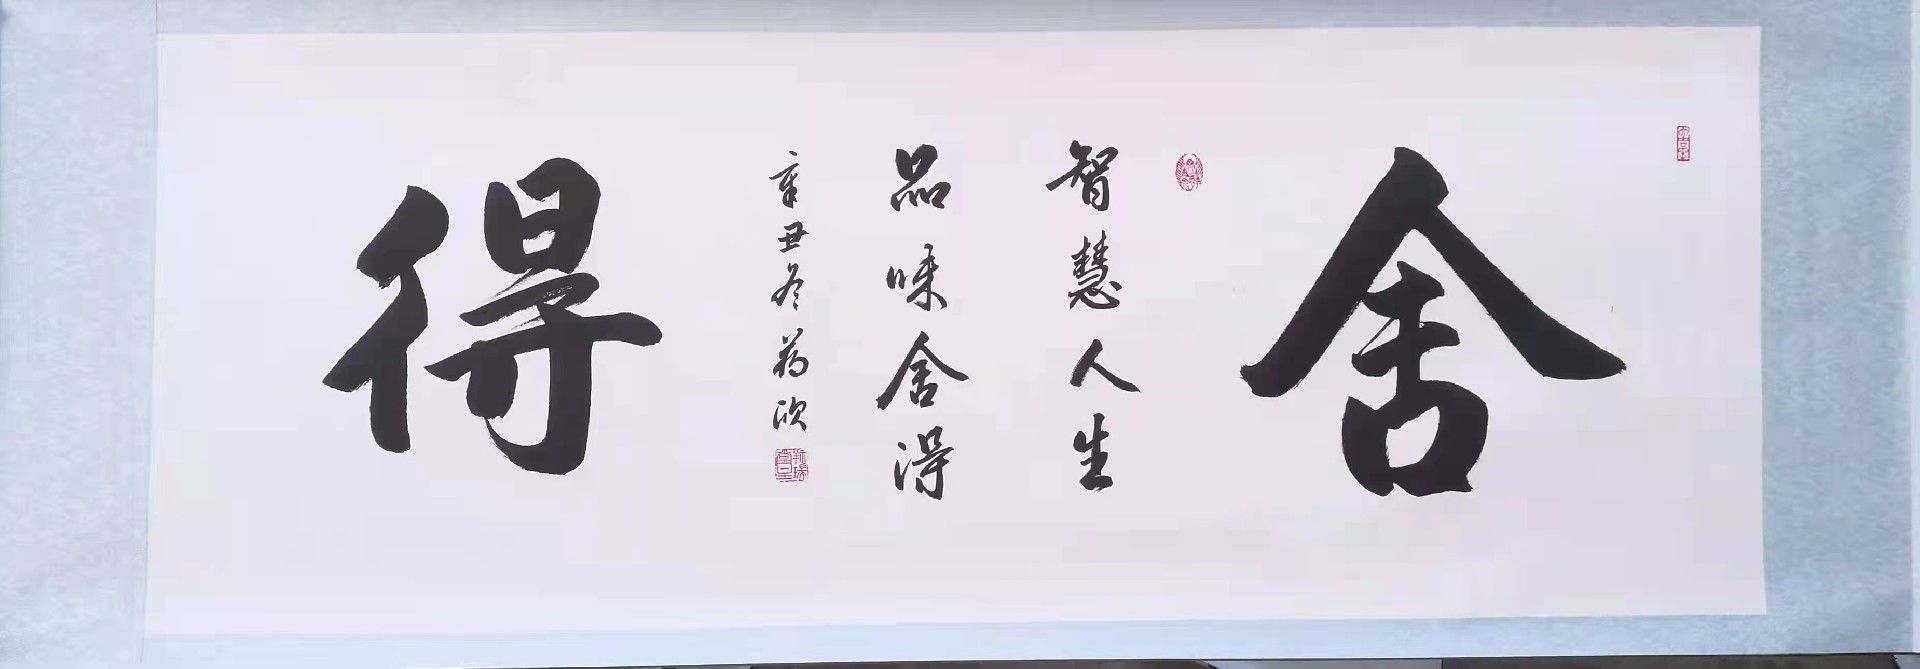 舍
智慧人生
品味舍得
辛丑冬
得